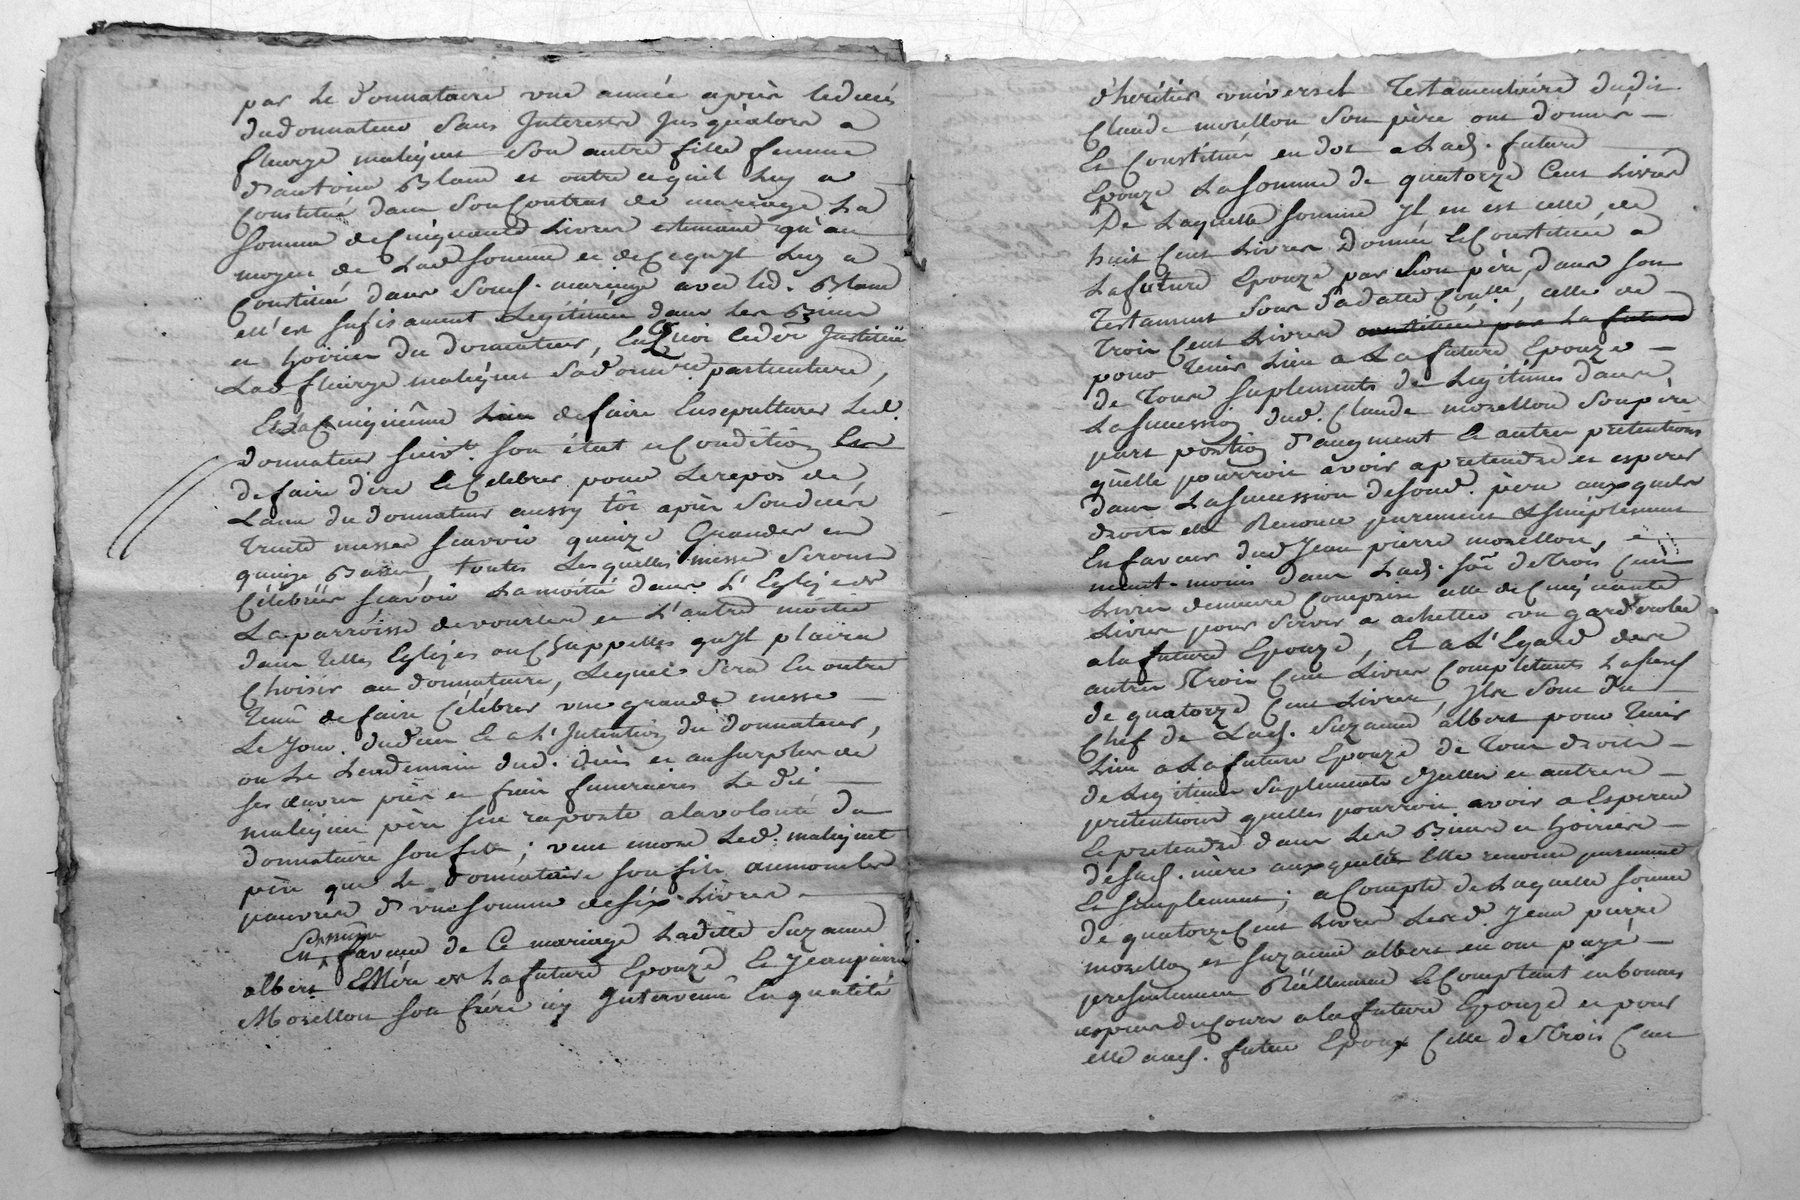 par le donnataire une année après le decés
du donnateur sans Interests jusqu'alors a
fleurye malignet son autre fille femme
d'antoine Blanc et outre ce quil luy a
Constitué dans son Contrat de mariage La
somme de Cinquante Livres estimant qu'au
moyen de lad somme et de ce qu'yl luy a
Constitué dans sond. mariage avec led. Blanc
ell'est sufisament Legitimée dans les Biens
et hoiries du donnateur, En Quoi led. Institue
Lad fleurye malignet particuliere,
Et la Cinquième de faire Ensepulturer led.
donnateur suiv.t son état et Condition Et
de faire dire et Celebrer pour le repos de
L'ame du donnateur aussy tôt après son decés
Trente messes scavoir quinze Grandes et
quinze Basses, toutes Lesquelles messes seront
Célébrées scavoir La moitié dans L'Eglize de
La parroisse de vourles et L'autre moitié
dans telles Eglizes ou Chappelles qu'yl plaira
Choisir au donnataire, Lequel sera En outre
tenu de faire Célébrer une grande messe
Le Jour du decés Et a L'Intention du donnateur,
ou Le Lendemain dud. decés et au surplus de
ses œuvres pies et frais funeraires Le dit
malignet père s'en raporte a la volonté du
donnataire son fils ; veut encore Led. malignet
père que Le donnataire son fils aumone les
pauvres d'une somme de six Livres
En faveur de Ce mariage Laditte Suzanne
albert Mère de La future Epouze Et Jean pierre
Mozellon son frère icy Intervenu En qualité
d'heritier universel Testamentaire dudit
Claude mozellon son père ont donné
Et Constitué en dot a Lad. future
Epouze La somme de quatorze Cent Livres
De Laquelle somme yl en est celle de
huit Cent Livres Donnée et Constituée a
La future Epouze par son père dans son
Testament sous sa datte, celle de
Trois Cent Livres constituée par La future
pour tenir Lieu a La future Epouze
de Tous suplements de Legitimes dans
La succession dud. Claude mozellon son père
part portion d'augment et autres pretentions
qu'elle pourroit avoir a pretendre et esperer
dans La succession de sond. père auxquels
droits elle Renonce purement et simplement
En faveur dud Jean pierre mozellon,
dans Lad. so.e de trois Cent
Livres demeure Comprise celle de Cinquante
Livres pour servir a achetter un garderobe
a la future Epouze, Et a L'Egard des
autres Trois Cent Livres Completants La so.e
de quatorze Cent Livres, yls sont du
Chef de Lad. Suzanne albert pour Tenir
Lieu a La future Epouze de Tous droits
de Legitimes suplements d'yceltes et autres
pretentions quelles pourroit avoir a Esperer
Et pretendre dans Les Biens et hoiries
de sad. mère auxquelles Elle renonce purement
Et simplement ; a Compte de Laquelle somme
de quatorze Cent Livres Lesd Jean pierre
mozellon et Suzanne albert en ont payé
presentement Réellement et Comptant en bonnes
especes du Cours a la future Epouze et pour
elle aud. futur Epoux Celle de Trois Cent